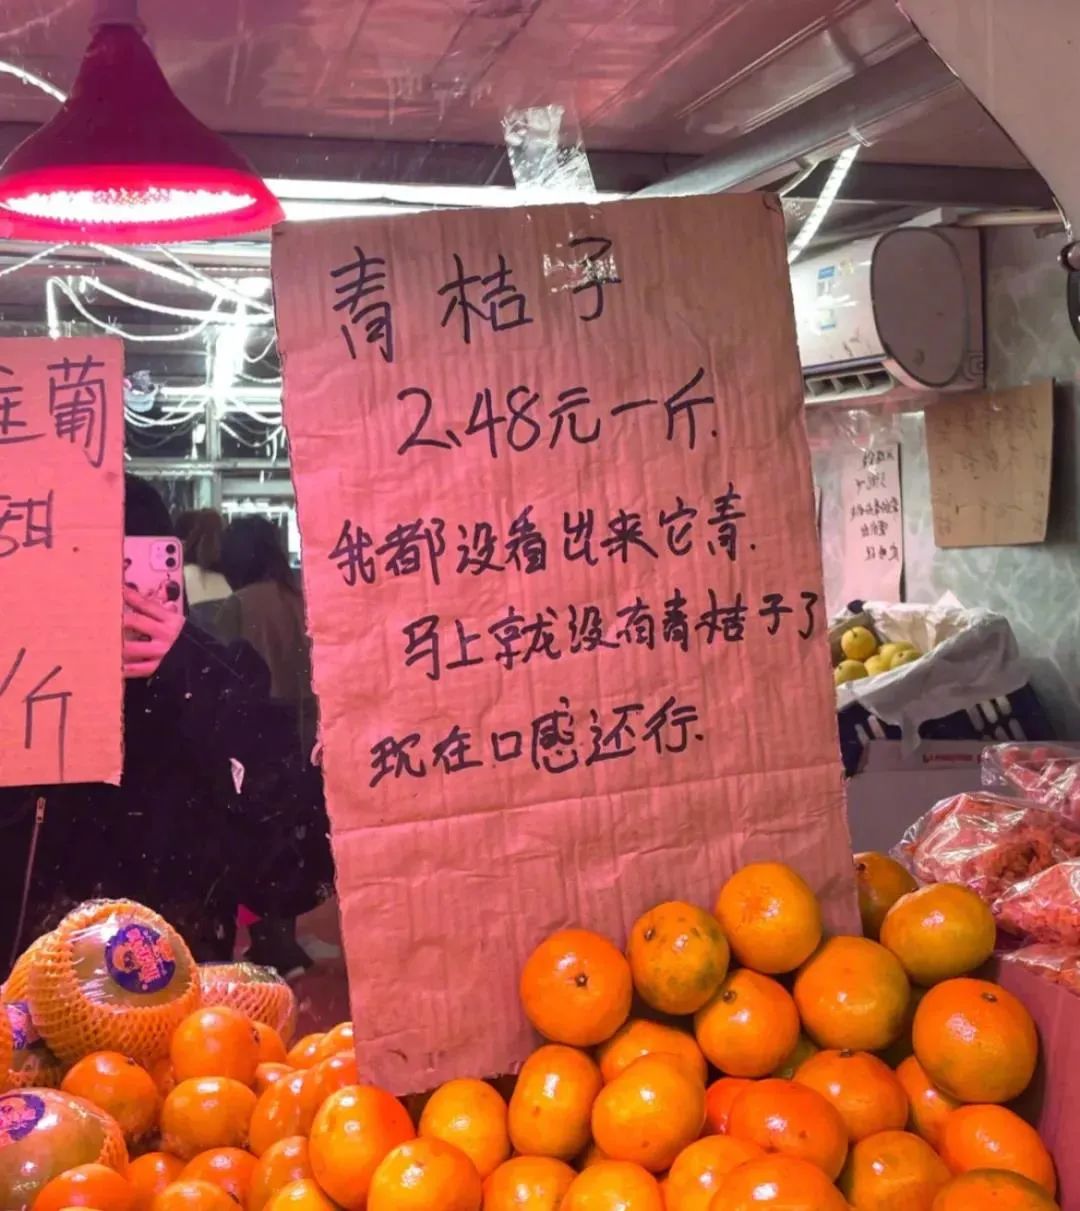 青桔子
2.48元一斤.
我都没看出来它青.
马上就没有青桔子了
现在口感还行.
葡
甜
/斤